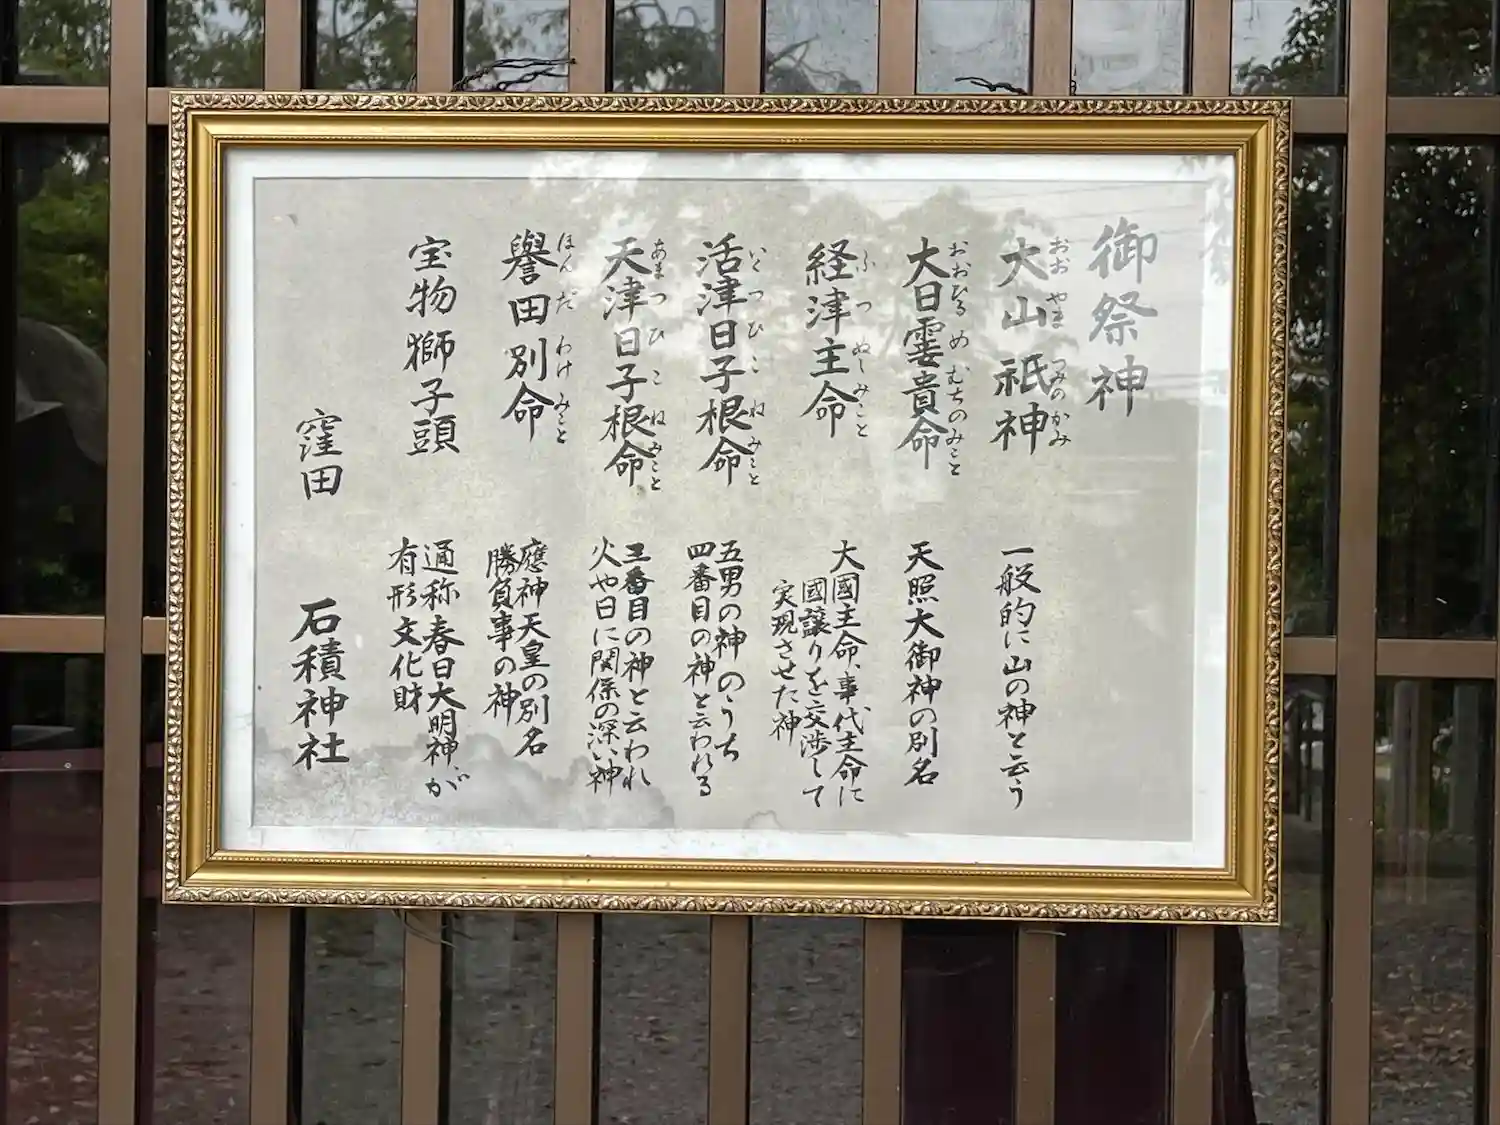 御祭神
大山祇神
おおやまつみのかみ
一般的に山の神と云う
大日孁貴命
おおひるめむちのみこと
天照大御神の別名
経津主命
ふつぬしみこと
大國主命、事代主命に
國譲りを交渉して
実現させた神
活津日子根命
いくつひこねみこと
五男の神のうち
四番目の神と云われる
天津日子根命
あまつひこねみこと
三番目の神と云われ
火や日に関係の深い神
譽田別命
ほんだわけみこと
應神天皇の別名
勝負事の神
宝物獅子頭
通称春日大明神が
有形文化財
窪田 石積神社